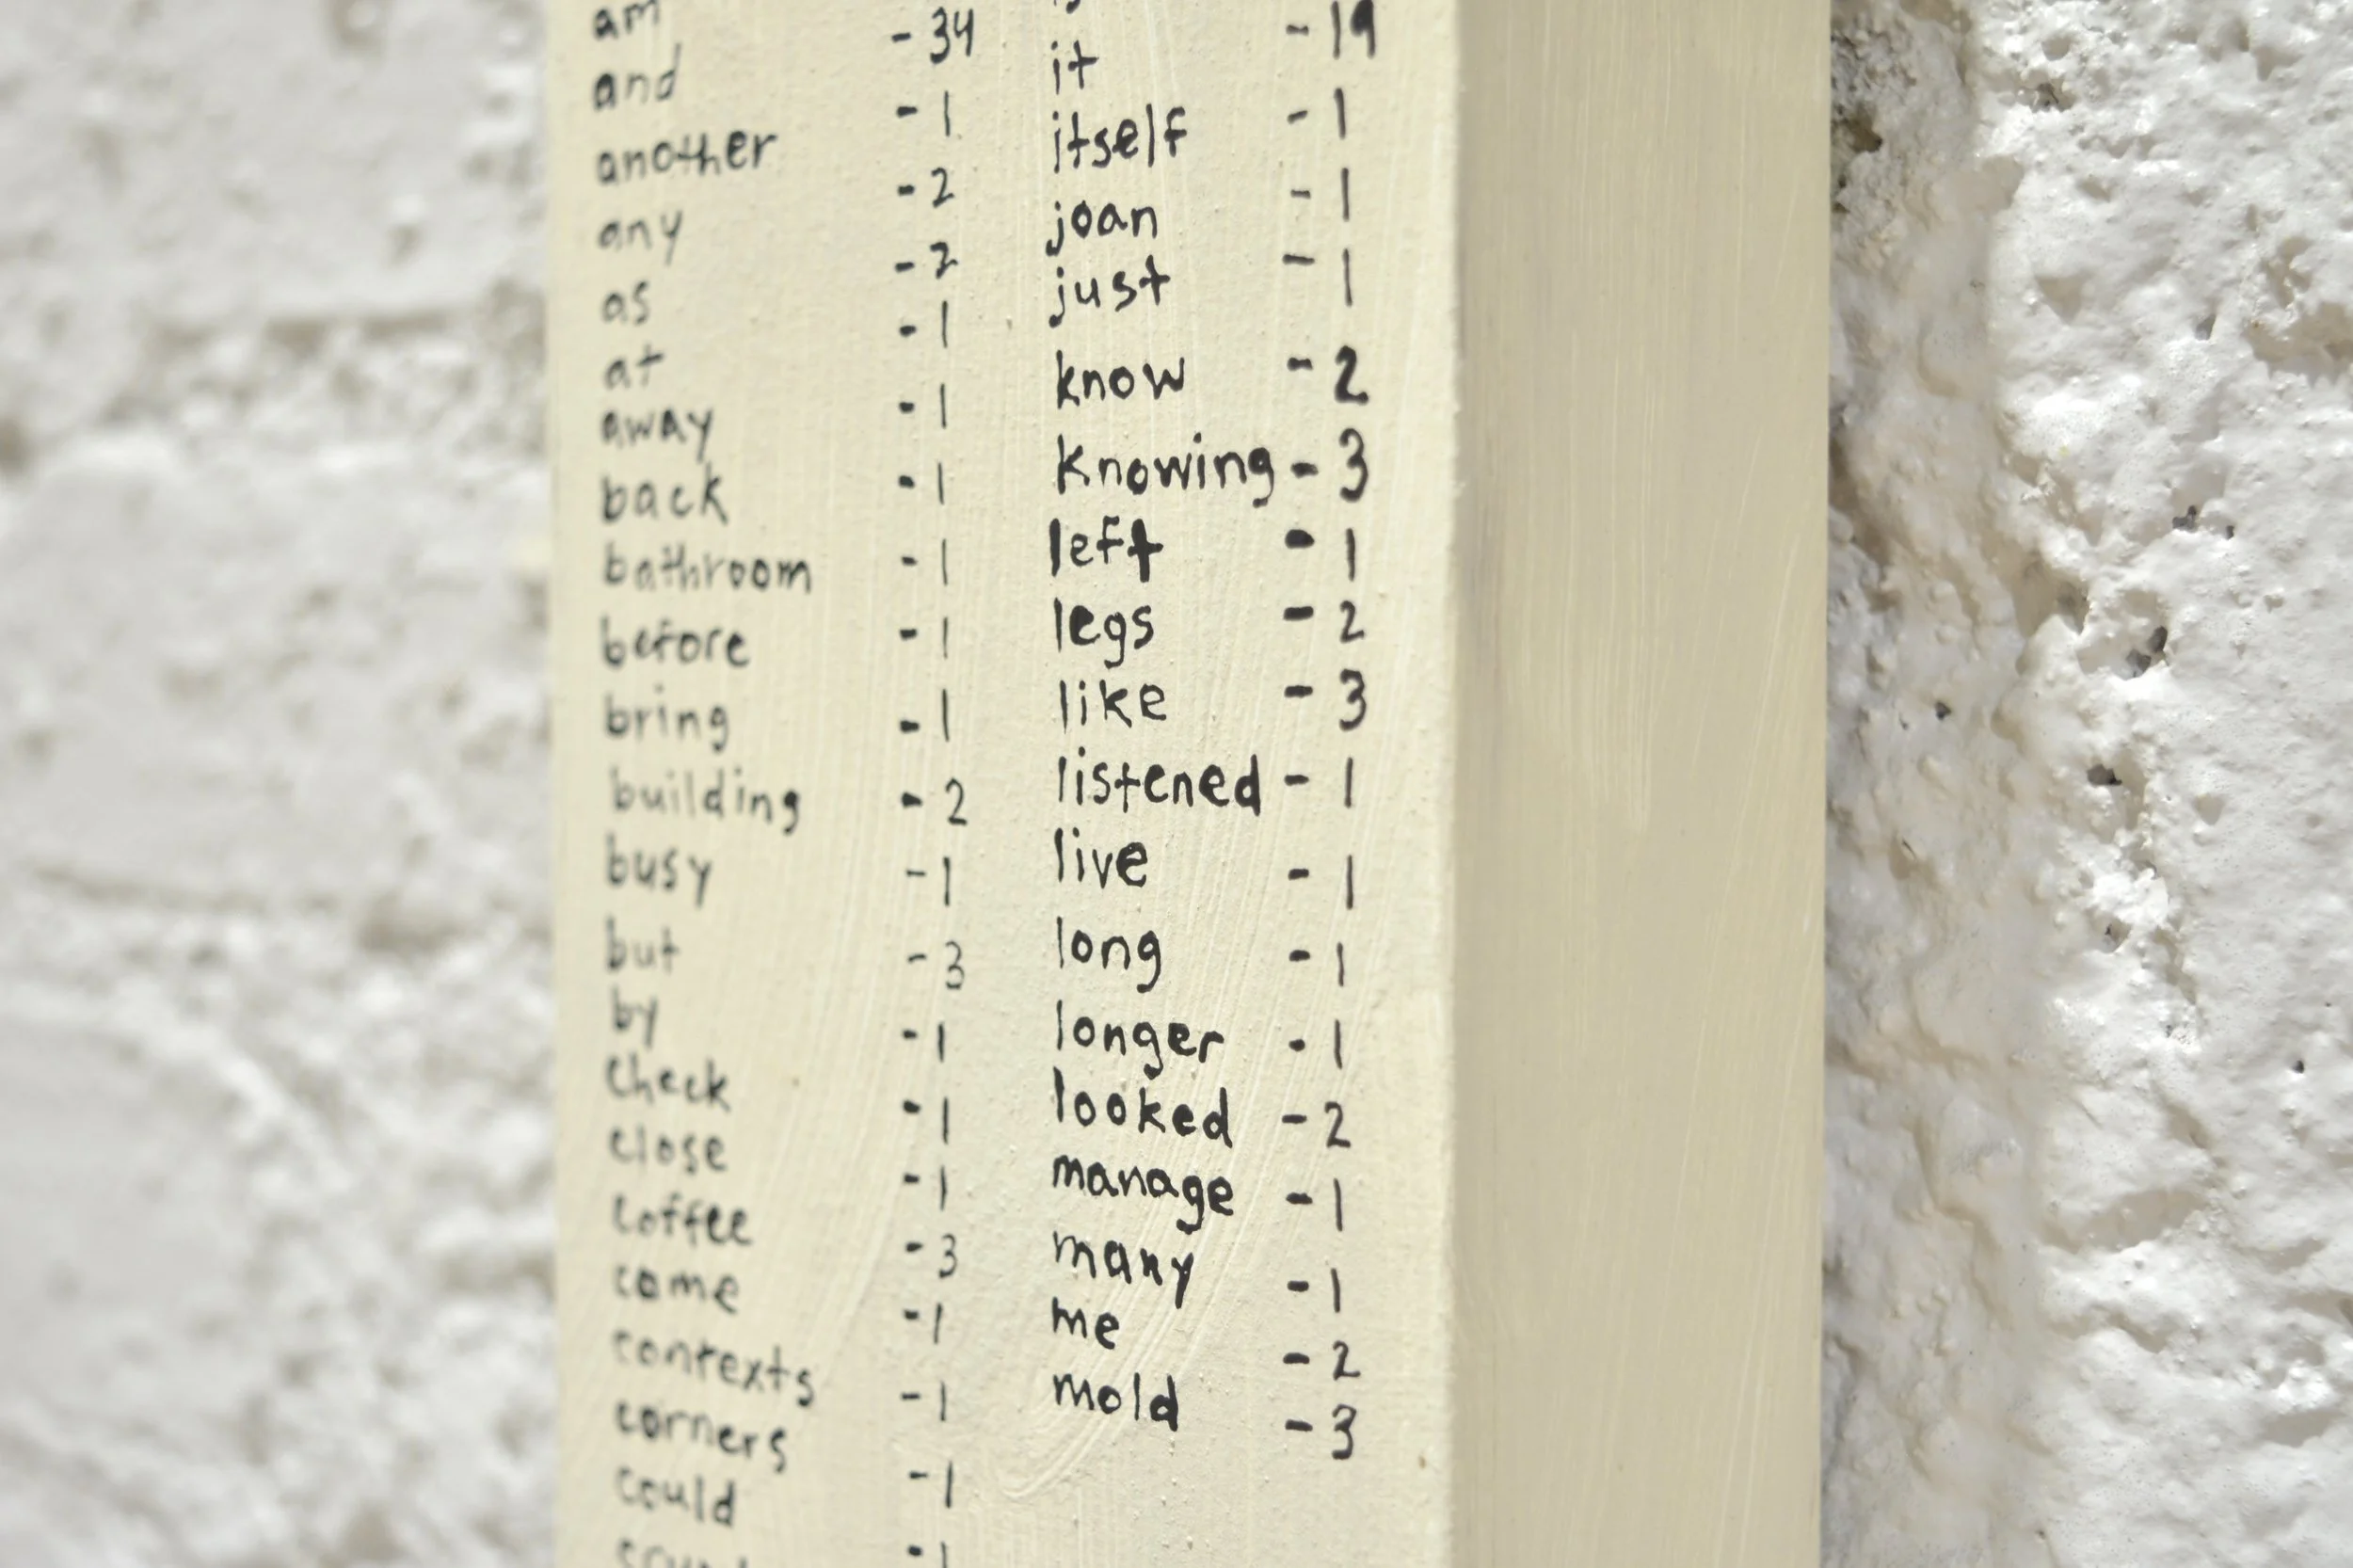 am
and - 34
another - 1
any - 2
as - 2
at - 1
away - 1
back - 1
bathroom - 1
before - 1
bring - 1
building - 2
busy - 1
but - 3
by - 1
check - 1
close - 1
coffee - 3
come - 1
contexts - 1
corners - 1
could - 1
- 1
it - 19
itself - 1
joan - 1
just - 1
know - 2
knowing - 3
left - 1
legs - 2
like - 3
listened - 1
live - 1
long - 1
longer - 1
looked - 2
manage - 1
many - 1
me - 2
mold - 3